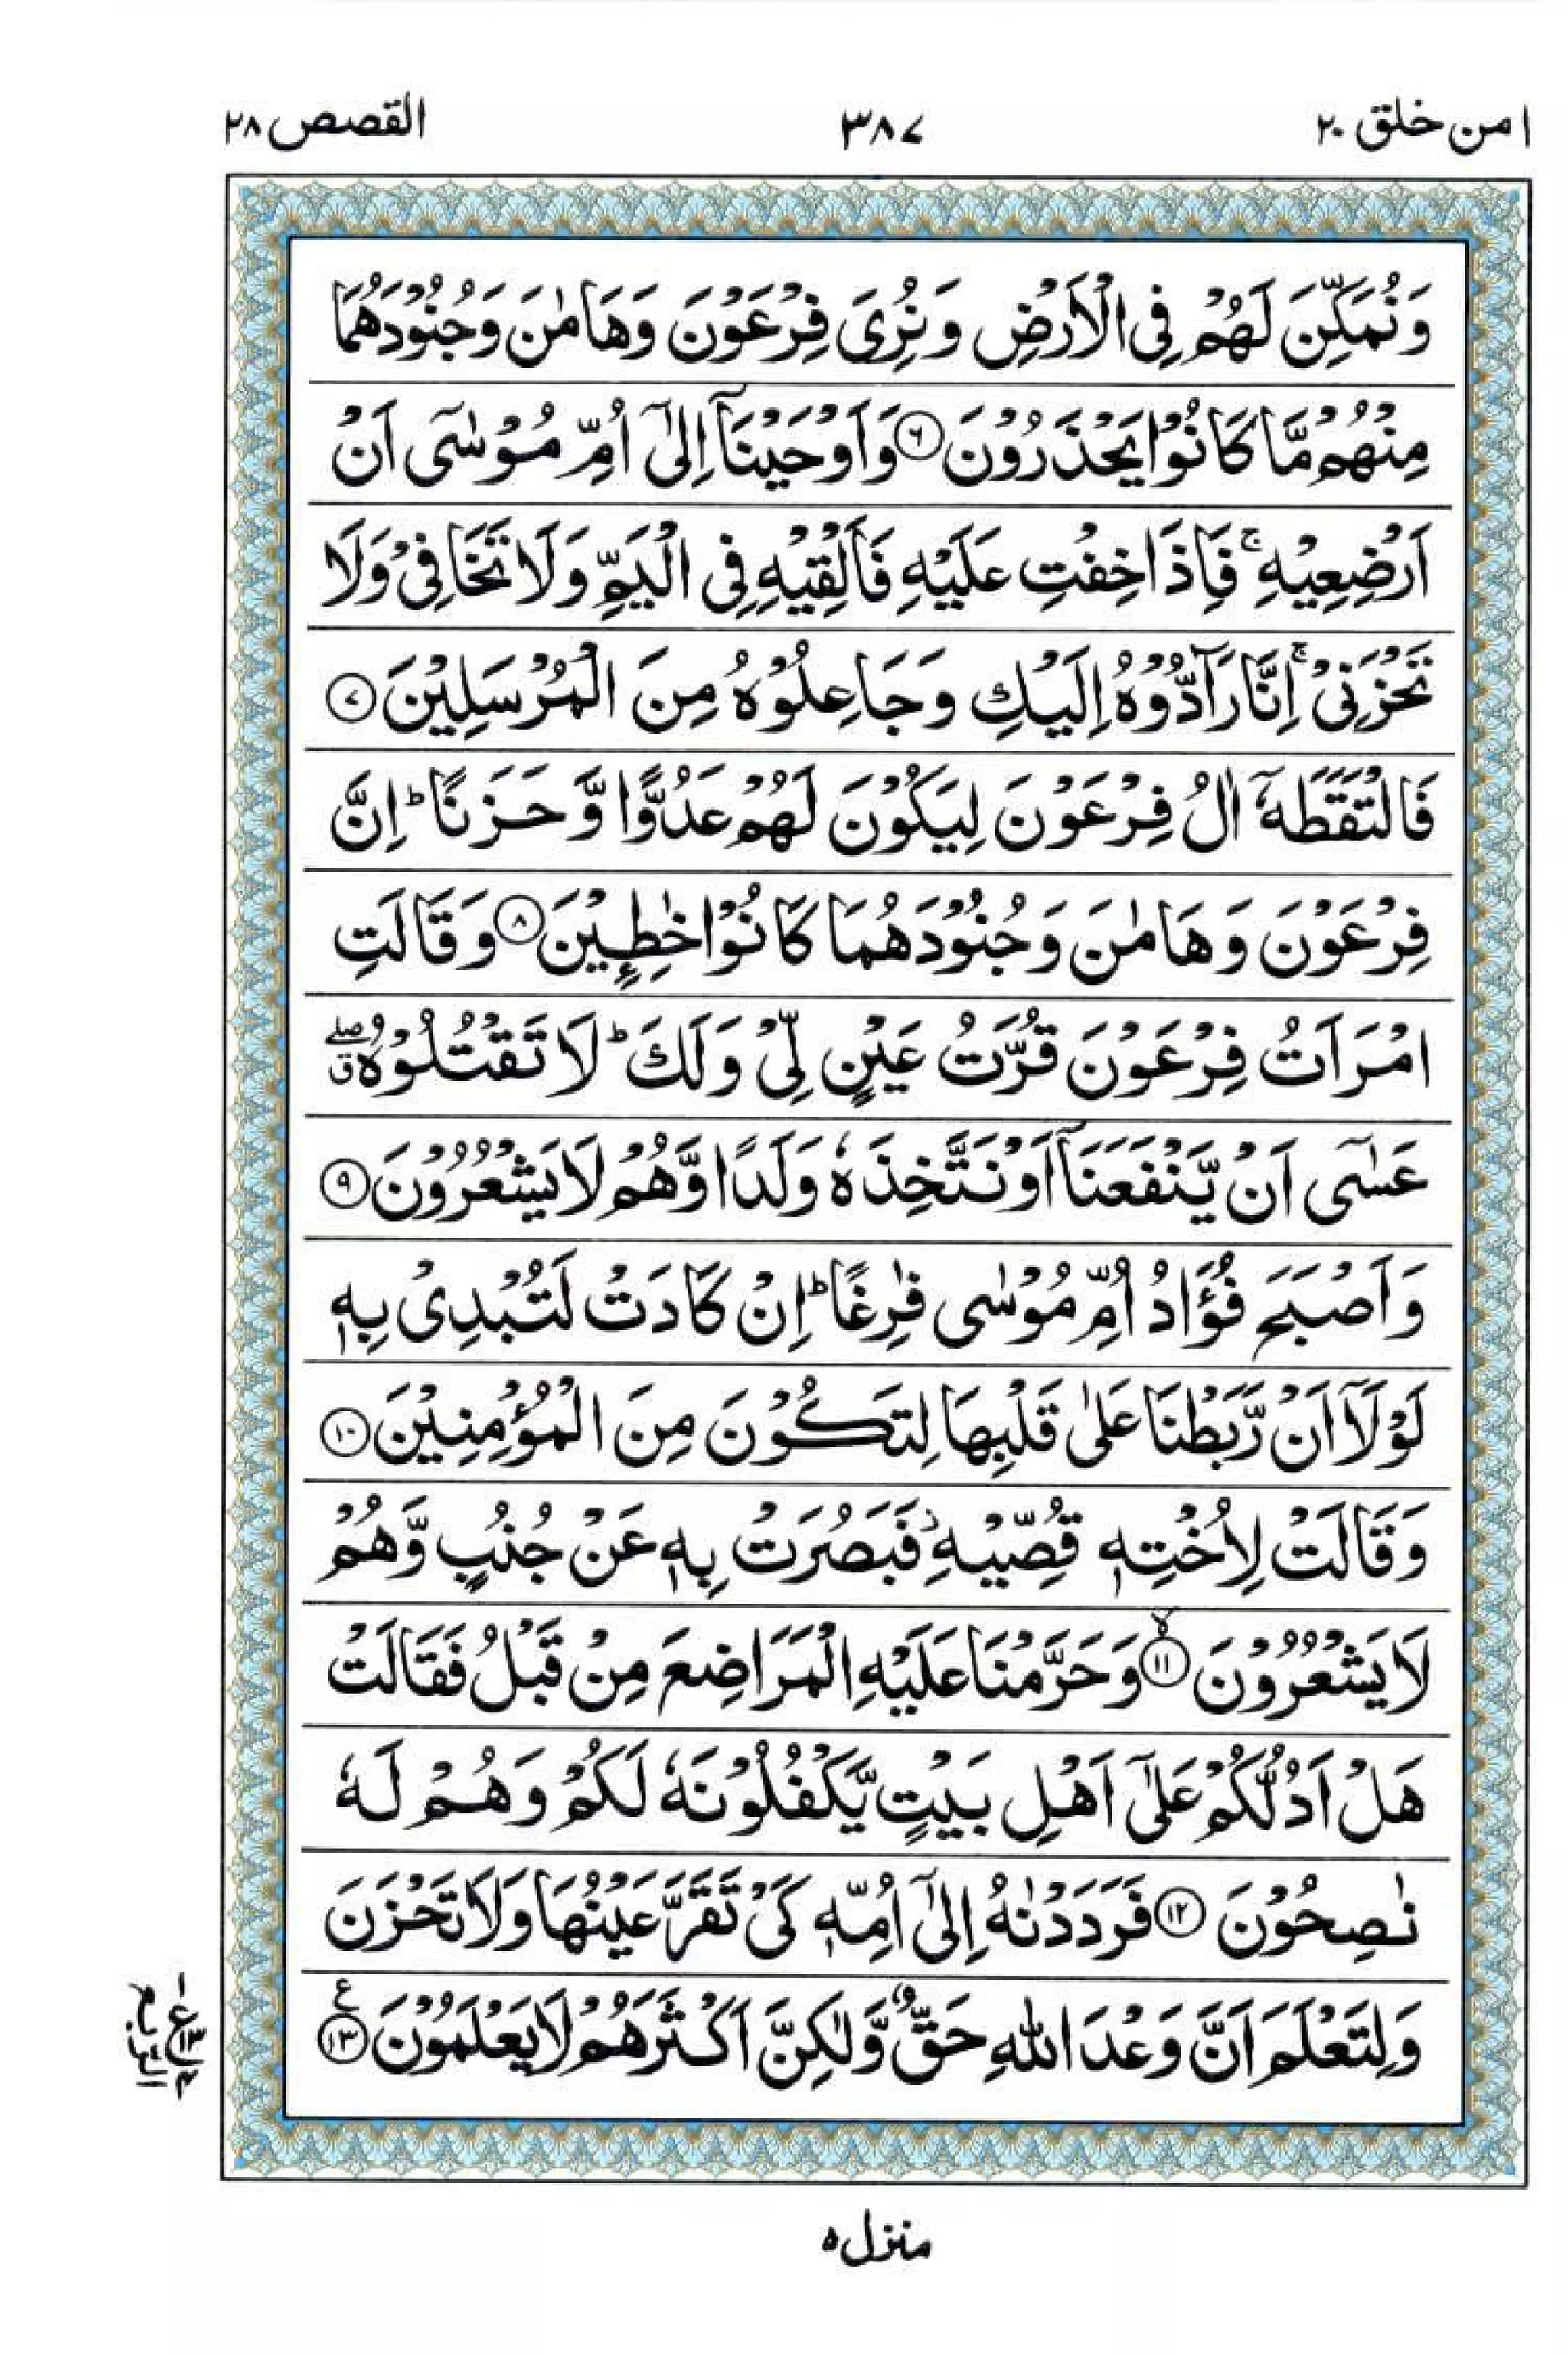 امن خلق ۲۰
۳۸۷
القصص ۲۸
وَنُمَكِّنَ لَهُمْ فِی الْاَرْضِ وَنُرِیَ فِرْعَوْنَ وَهَامٰنَ وَجُنُوْدَهُمَا
مِنْهُمْ مَّا كَانُوْا یَحْذَرُوْنَ ۶ وَاَوْحَیْنَاۤ اِلٰۤی اُمِّ مُوْسٰۤی اَنْ
اَرْضِعِیْهِ ۚ فَاِذَا خِفْتِ عَلَیْهِ فَاَلْقِیْهِ فِی الْیَمِّ وَلَا تَخَافِیْ وَلَا
تَحْزَنِیْ ۚ اِنَّا رَآدُّوْهُ اِلَیْكِ وَجَاعِلُوْهُ مِنَ الْمُرْسَلِیْنَ ۷
فَالْتَقَطَهٗۤ اٰلُ فِرْعَوْنَ لِیَكُوْنَ لَهُمْ عَدُوًّا وَّحَزَنًا ؕ اِنَّ
فِرْعَوْنَ وَهَامٰنَ وَجُنُوْدَهُمَا كَانُوْا خٰطِـِٕیْنَ ۸ وَقَالَتِ
امْرَاَتُ فِرْعَوْنَ قُرَّتُ عَیْنٍ لِّیْ وَلَكَ ؕ لَا تَقْتُلُوْهُ ۖق
عَسٰۤی اَنْ یَّنْفَعَنَاۤ اَوْ نَتَّخِذَهٗ وَلَدًا وَّهُمْ لَا یَشْعُرُوْنَ ۹
وَاَصْبَحَ فُؤَادُ اُمِّ مُوْسٰی فٰرِغًا ؕ اِنْ كَادَتْ لَتُبْدِیْ بِهٖ
لَوْلَاۤ اَنْ رَّبَطْنَا عَلٰی قَلْبِهَا لِتَكُوْنَ مِنَ الْمُؤْمِنِیْنَ ۱۰
وَقَالَتْ لِاُخْتِهٖ قُصِّیْهِ ؗ فَبَصُرَتْ بِهٖ عَنْ جُنُبٍ وَّهُمْ
لَا یَشْعُرُوْنَ ۙ۱۱ وَحَرَّمْنَا عَلَیْهِ الْمَرَاضِعَ مِنْ قَبْلُ فَقَالَتْ
هَلْ اَدُلُّكُمْ عَلٰۤی اَهْلِ بَیْتٍ یَّكْفُلُوْنَهٗ لَكُمْ وَهُمْ لَهٗ
نٰصِحُوْنَ ۱۲ فَرَدَدْنٰهُ اِلٰۤی اُمِّهٖ كَیْ تَقَرَّ عَیْنُهَا وَلَا تَحْزَنَ
وَلِتَعْلَمَ اَنَّ وَعْدَ اللّٰهِ حَقٌّ وَّلٰكِنَّ اَكْثَرَهُمْ لَا یَعْلَمُوْنَ ۱۳ ع
الربع
منزل ۵